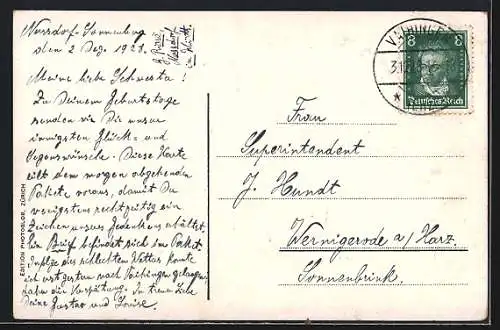 Nussdorf-Sonnenberg
den 2. Dez. 1927.
Meine liebe Schwester!
Zu Deinem Geburtstage
senden wir Dir unsere
innigsten Glück- und
Segenswünsche. Diese Karte
eilt dem morgen abgehenden
Pakete voraus, damit Du
wenigstens rechtzeitig ein
Zeichen unseres Gedenkens erhältst,
ein Brief befindet sich im Paket.
Infolge des schlechten Wetters konnte
ich erst gestern nach Vaihingen gelangen,
daher die Verspätung. In treuer Liebe
Deine Gustav und Louise.
Nussdorf
EDITION PHOTOGLOB, ZÜRICH
8 8
Deutsches Reich
Frau
Superintendent
J. Hundt
Wernigerode a/Harz.
Sonnenbrink.